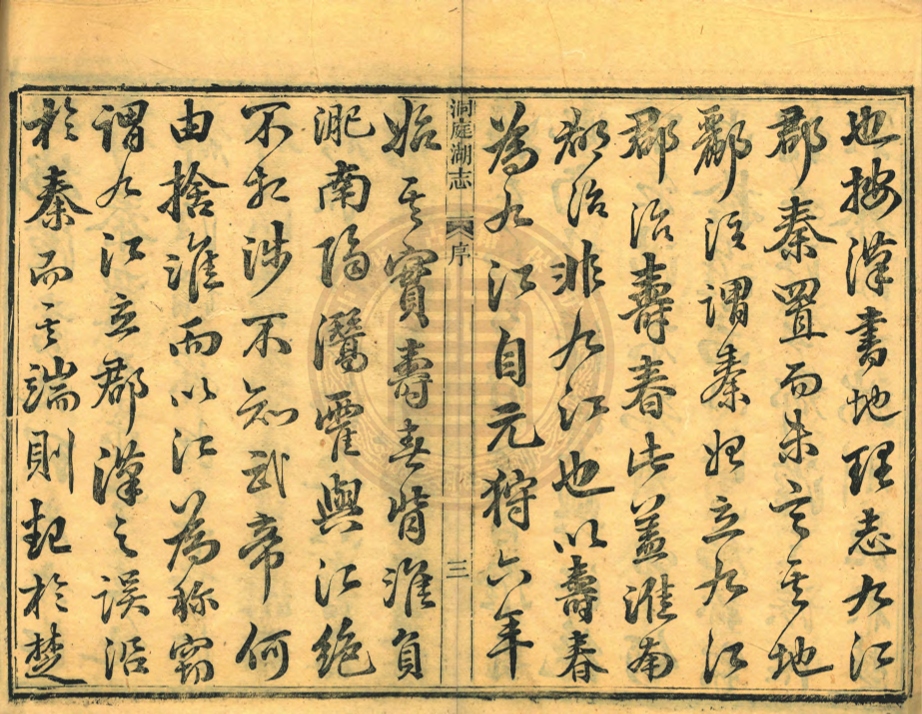 也按漢書地理志九江
郡秦置而未言其地
酈注謂秦始立九江
郡治壽春此蓋淮南
都治非九江也以壽春
為九江自元狩六年
洞庭湖志 序 三
始其實壽春背淮負
淝南隔灊霍與江絕
不相涉不知武帝何
由捨淮而以江為稱竊
謂九江立郡漢之誤沿
於秦而其端則起於楚